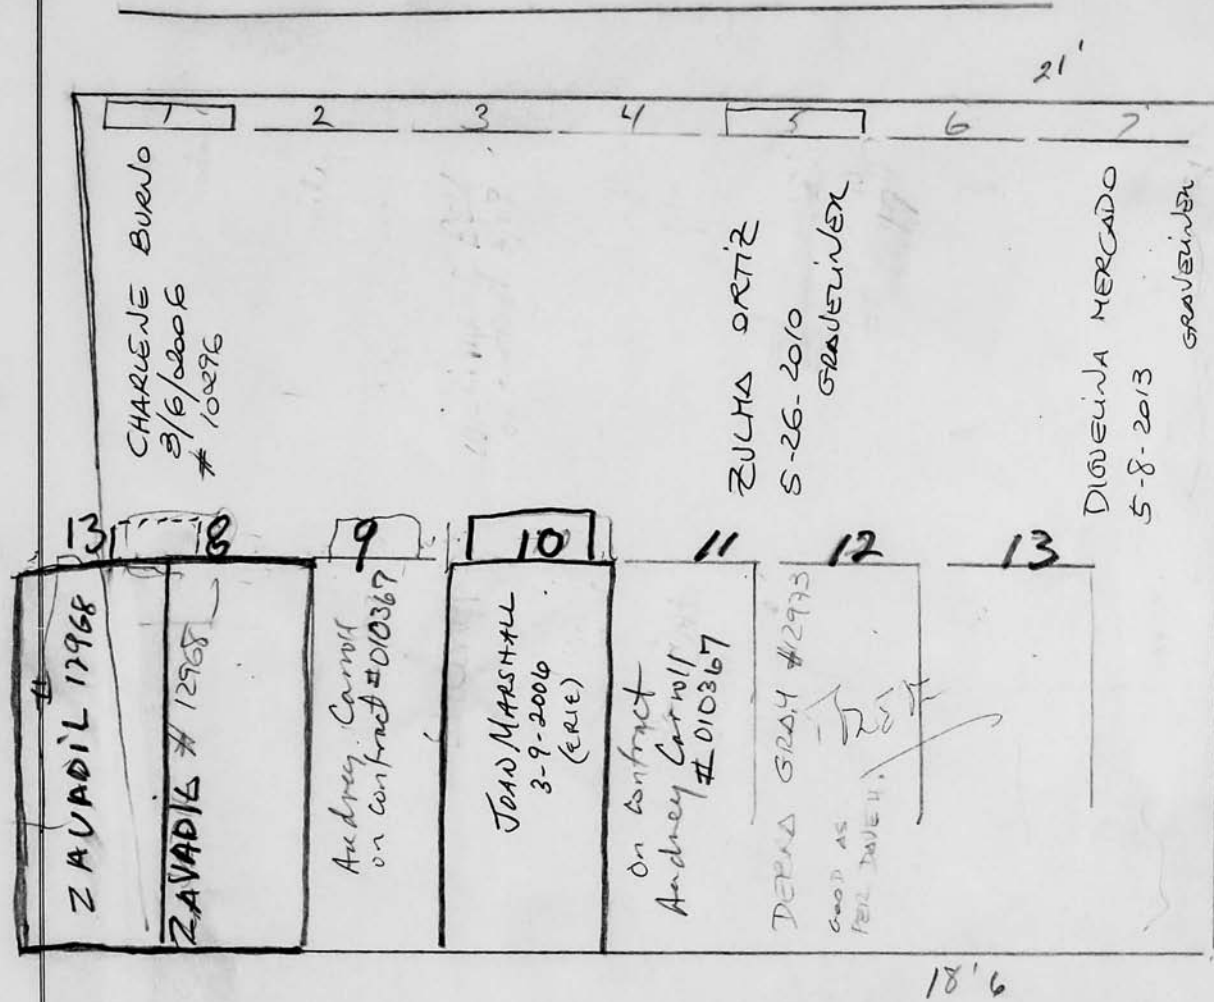 21'
1 2 3 4 5 6 7
CHARLENE BURNO
3/6/2006
# 10296
ZULMA ORTIZ
5-26-2010
GRAVELINER
DIGUELINA MERCADO
5-8-2013
GRAVELINER
13 8 9 10 11 12 13
ZAVADIL 12968
ZAVADIL # 12968
Audrey Carroll
on contract #010367
JOAN MARSHALL
3-9-2006
(ERIE)
on contract
Audrey Carroll
# 010367
GRAY #12973
GOOD AS
PER DAVE H.
18'6